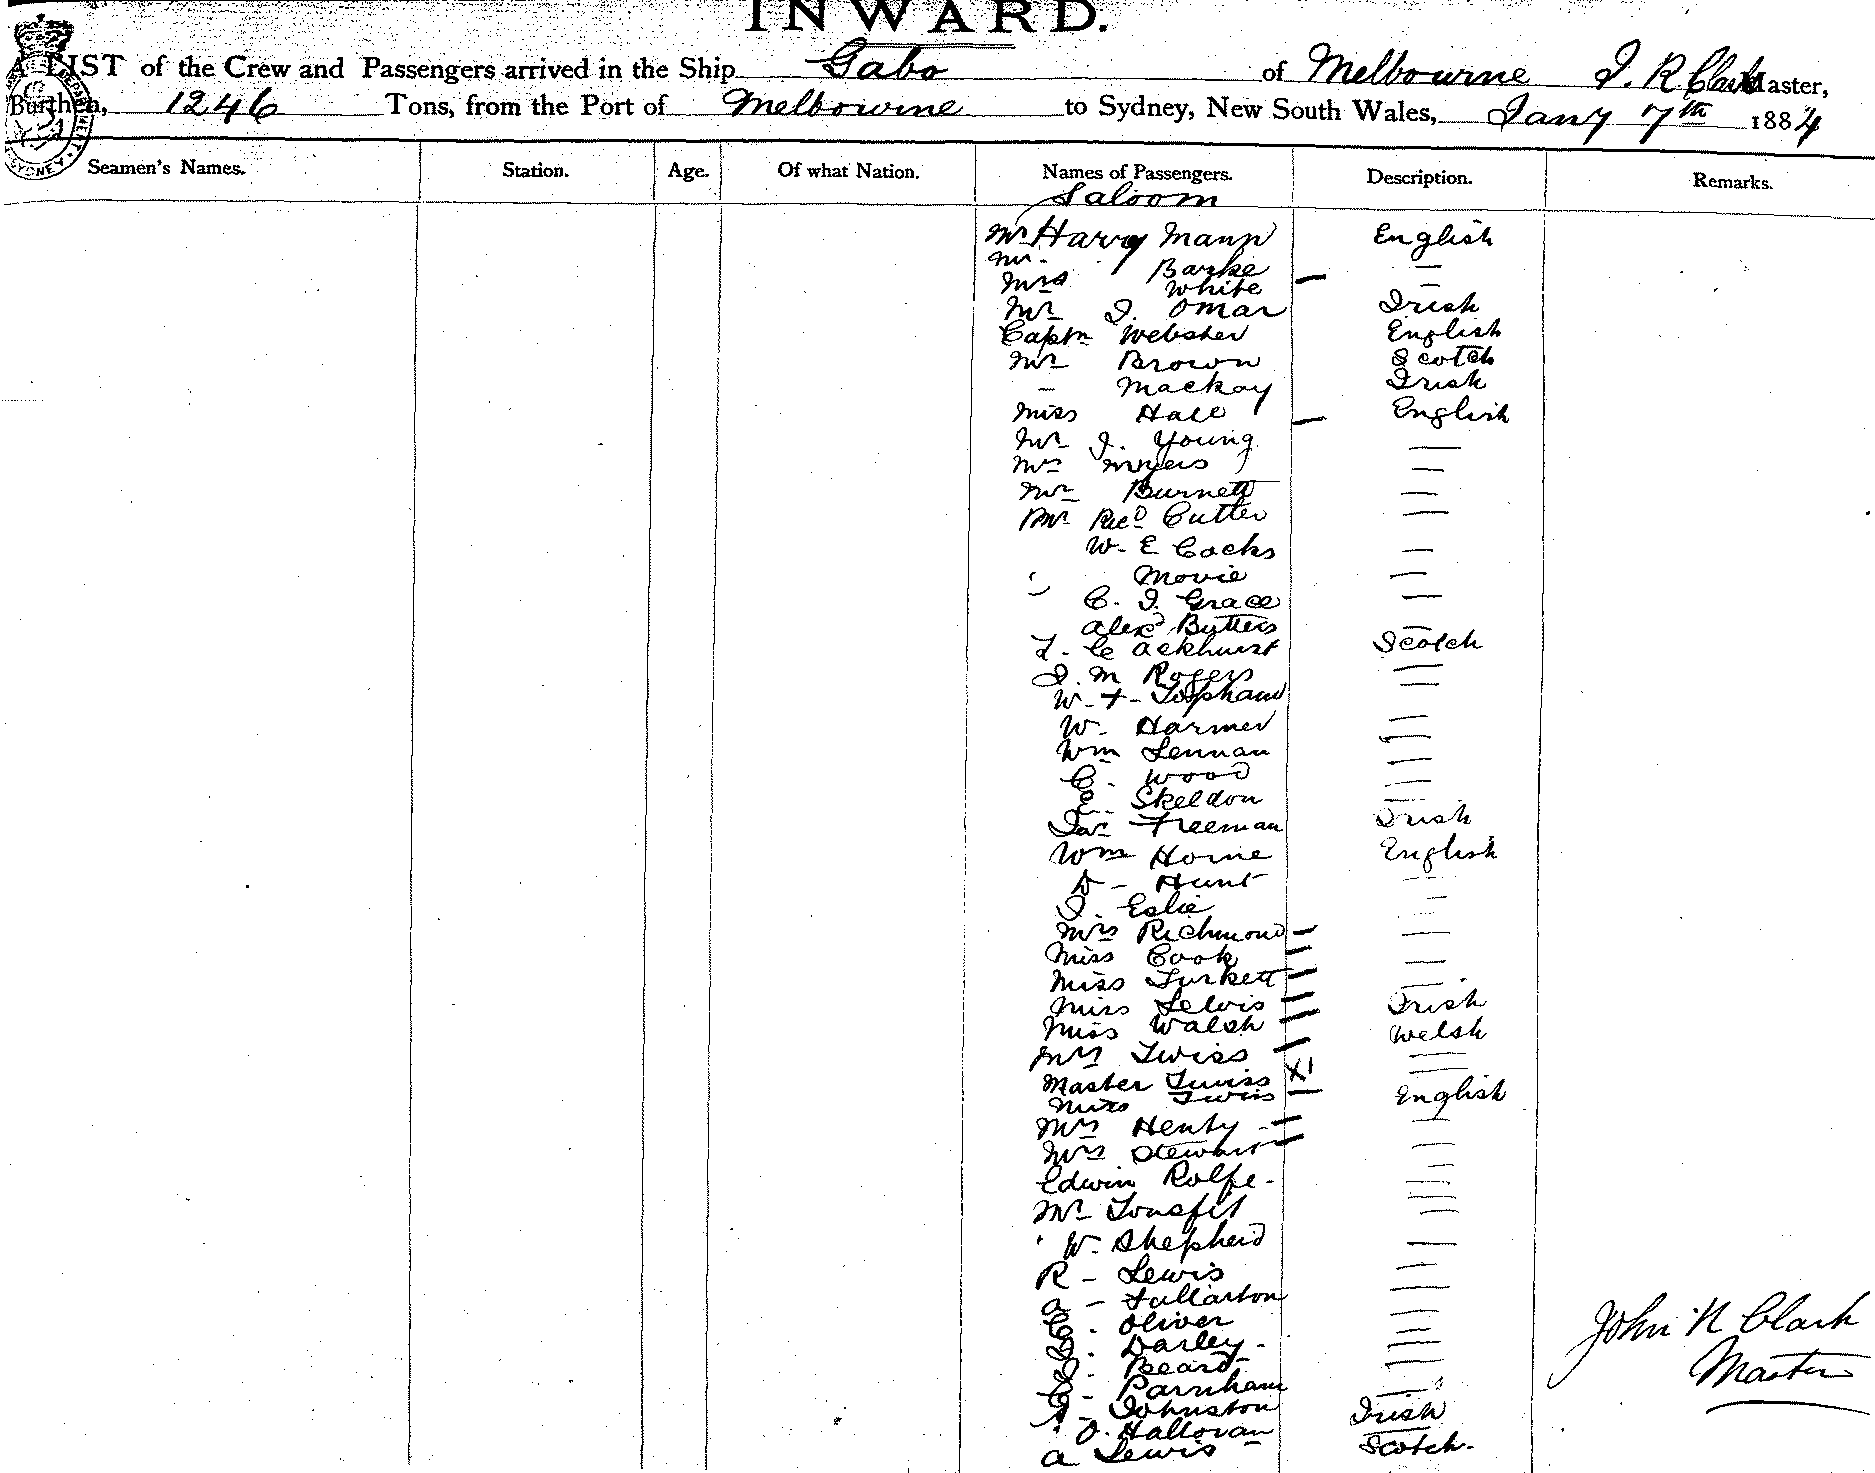 INWARD.
A LIST of the Crew and Passengers arrived in the Ship Gabo of Melbourne J. R Clark Master,
Burthen, 1246 Tons, from the Port of Melbourne to Sydney, New South Wales, Jany 7th 1884
Seamen's Names. Station. Age. Of what Nation. Names of Passengers. Description. Remarks.
Saloon
Mr Harry Mann English
Mr. Barke —
Mrs White — —
Mr J. Omar Irish
Captn Webster English
Mr Brown Scotch
— Mackay Irish
Miss Hall — English
Mr J. Young —
Mr Myers —
Mr Burnett —
Mr Ricd Cutter —
W. E Cocks —
Movie —
C. J. Grace —
Alexr Butters —
Ackhurst Scotch
J. M Rogers —
W. F. Topham —
W. Harmer —
Wm Lennan —
C. Wood —
Skeldon —
Jas Freeman Irish
Wm Horne English
D — Hunt —
J. Eslie —
Mrs Richmond — —
Miss Cook — —
Miss Turkett — —
Miss Lewis — Irish
Miss Walsh — Welsh
Mrs Twiss — —
Master Twiss X —
Miss Twiss — English
Mrs Henty — —
Mrs Stewart — —
Edwin Rolfe — —
Mr —
W. Shepherd —
R — Lewis —
A — Fullarton —
C. Oliver —
Darley —
J. Beard —
Parnham —
Johnston Irish
O. Halloran —
A Lewis Scotch
John R Clark
Master